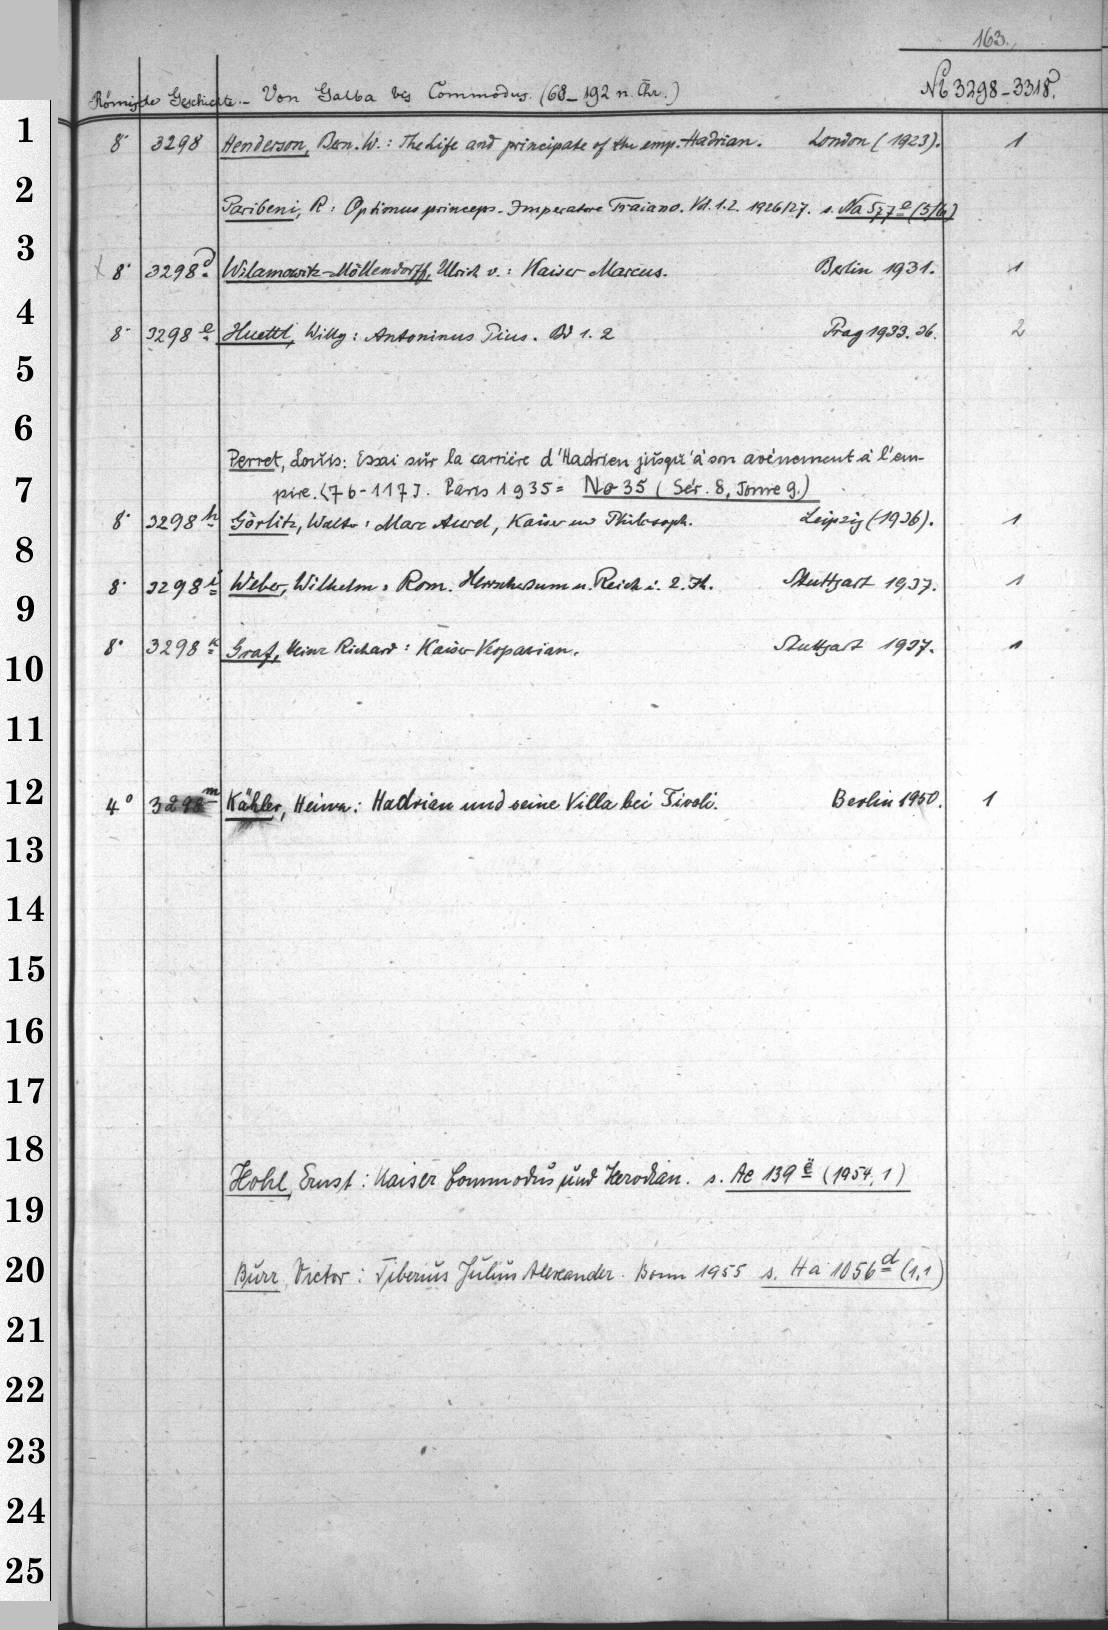 163.
Römische Geschichte. - Von Galba bis Commodus. (68-192 n. Chr.)
Nb 3298-3318.
1
8° 3298 Henderson, Bern. W.: The Life and principate of the emp. Hadrian. London (1923). 1
2
Paribeni, R: Optimus princeps. Imperatore Traiano. Vol. 1.2. 1926/27. s. Na 577 e (5/6)
3
8° 3298 d Wilamowitz-Möllendorff, Ulrich v.: Kaiser Marcus. Berlin 1931. 1
4
8° 3298 e Huettl, Willy: Antoninus Pius. Bd 1. 2 Prag 1933. 36. 2
5
6
Perret, Louis: Essai sur la carrière d'Hadrien jusqu'à son avènement à l'em-
7
pire. (76-117). Paris 1935 = No 35 (Sér. 8, Tome 9.)
8° 3298 h Görlitz, Walter: Marc Aurel, Kaiser und Philosoph. Leipzig (1936). 1
8
8° 3298 i Weber, Wilhelm: Rom. Herrschertum u. Reich i. 2. Jh. Stuttgart 1937. 1
9
8° 3298 k Graf, Heinz Richard: Kaiser Vespasian. Stuttgart 1937. 1
10
11
12
4° 3298 m Kähler, Heinz: Hadrian und seine Villa bei Tivoli. Berlin 1950. 1
13
14
15
16
17
18
Hohl, Ernst: Kaiser Commodus und Herodian. s. Ac 139 (1954, 1)
19
20
Burr, Victor: Tiberius Julius Alexander. Bonn 1955 s. Ha 1056 d (1,1)
21
22
23
24
25